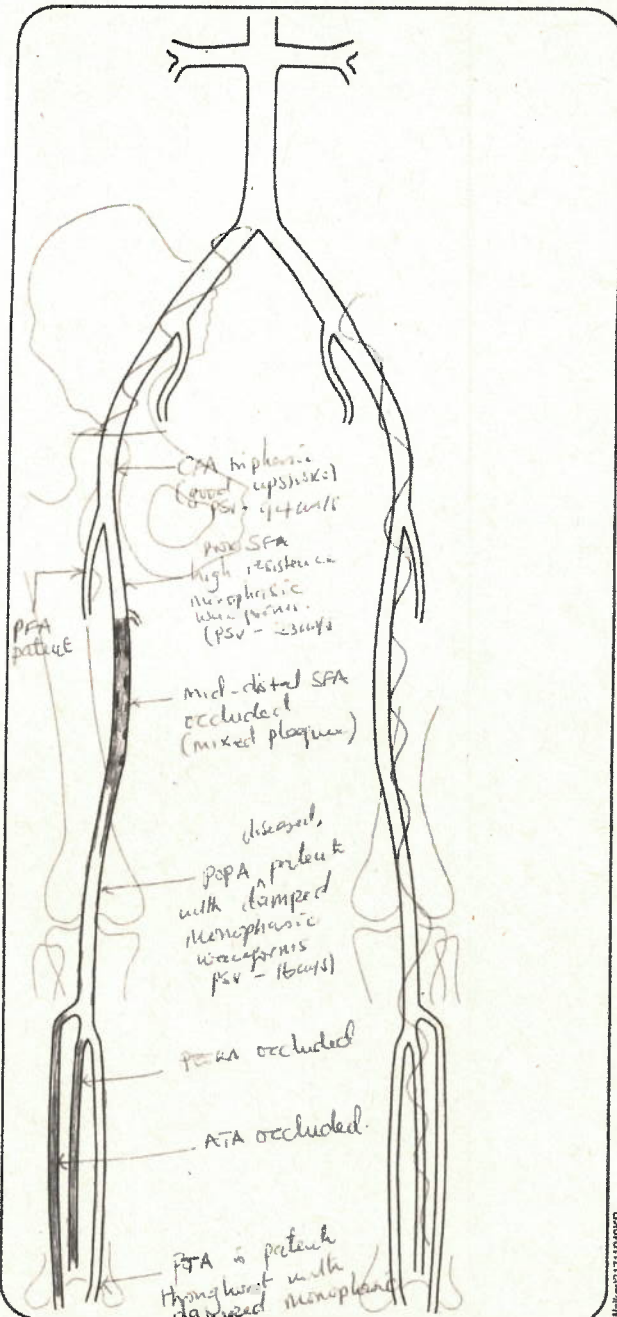 CFA triphasic
(good upstroke)
PSV - 94cm/s
SFA
high resistence
monophasic
waveforms.
(PSV - 23cm/s
PFA
patent
mid-distal SFA
occluded
(mixed plaque)
diseased,
POPA patent
with damped
monophasic
waveforms
PSV - 16cm/s)
occluded
ATA occluded.
PTA is patent
throughout with
damped monophasic